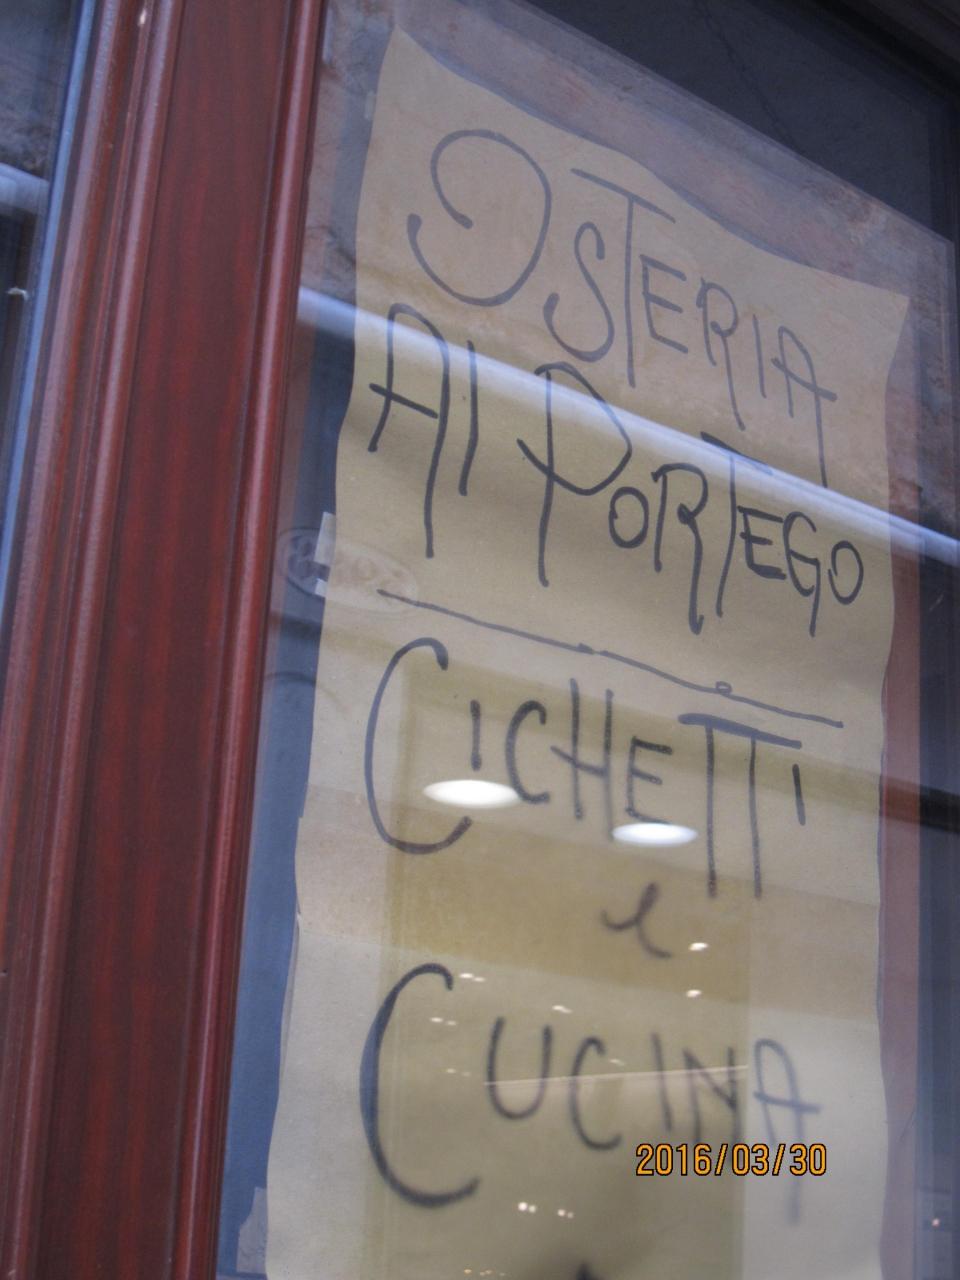 OSTERIA
Al PORTEGO
CICHETTI
e
CUCINA
2016/03/30